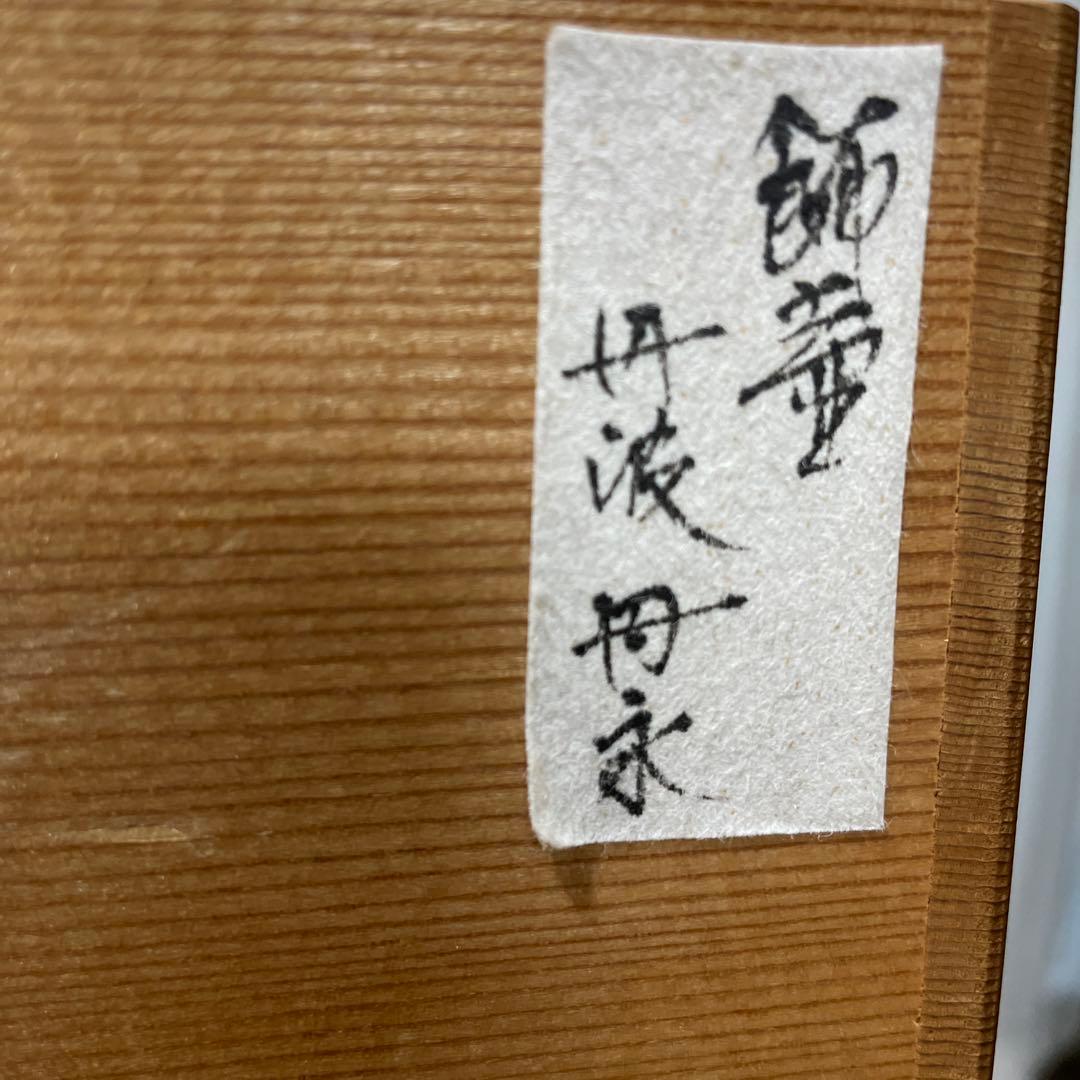 飾壷
丹波 丹永